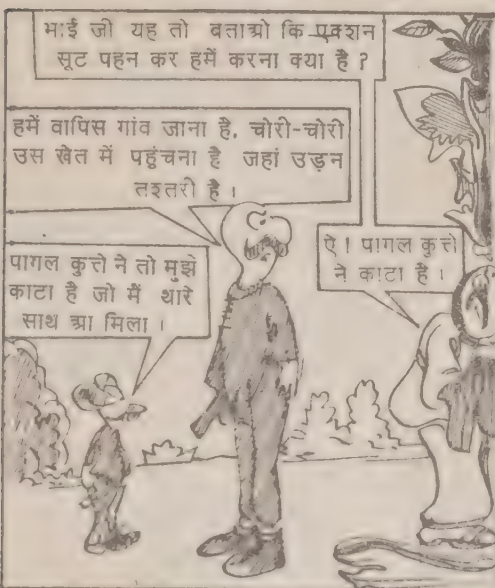 भाई जी यह तो बताओ कि एक्शन
सूट पहन कर हमें करना क्या है ?
हमें वापिस गांव जाना है, चोरी-चोरी
उस खेत में पहुंचना है जहां उड़न
तश्तरी है ।
ऐ ! पागल कुत्ते
ने काटा है ।
पागल कुत्ते ने तो मुझे
काटा है जो मैं थारे
साथ आ मिला ।